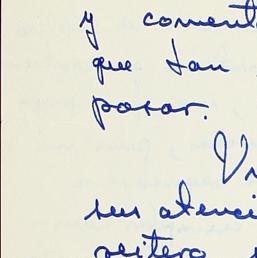 y coment
que tan
pasar.
sus atenci
reitero